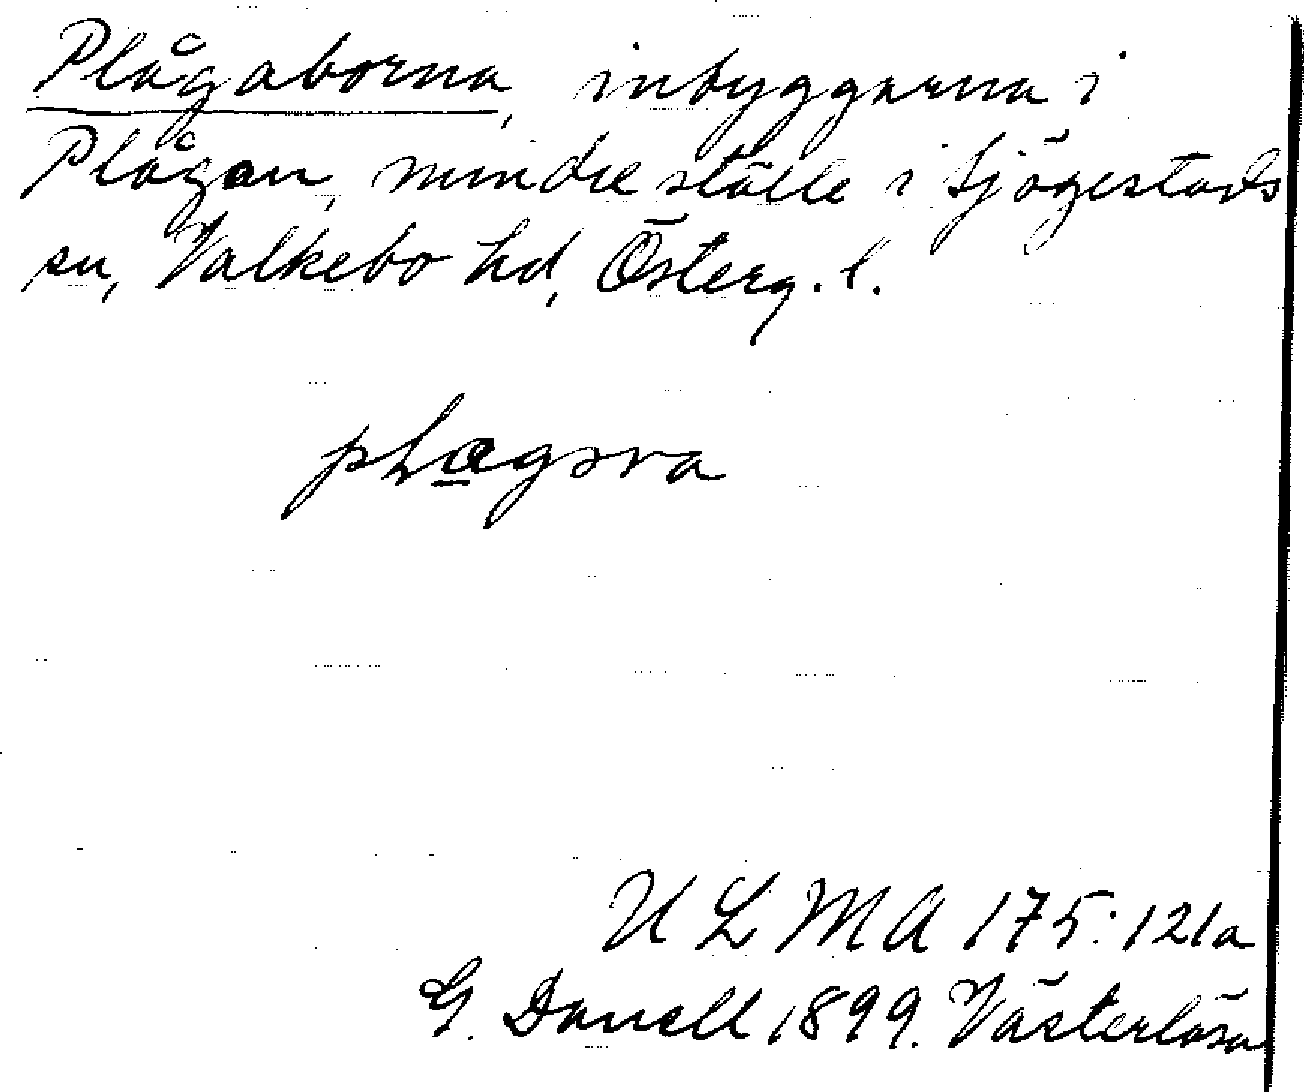 Plågaborna, inbyggarna i
Plågan, mindre ställe i Sjögestads
sn, Valkebo hd, Österg. l.
ULMA 175:121a
G. Danell 1899. Västerlösa